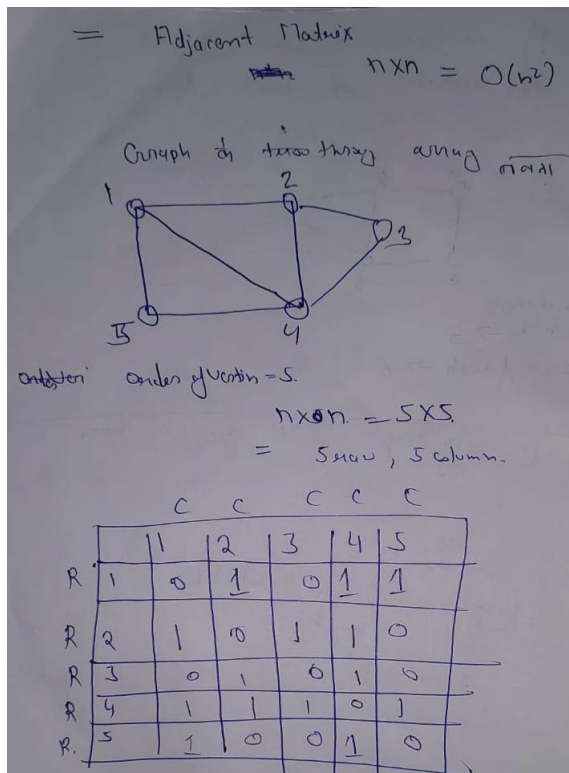 = Adjacent Matrix
n×n = O(n²)
Graph array
1 2
3
5 4
order of vertin = 5.
n×n. = 5×5.
= 5 row, 5 column.
C C C C C
1 2 3 4 5
R 1 0 1 0 1 1
R 2 1 0 1 1 0
R 3 0 1 0 1 0
R 4 1 1 1 0 1
R. 5 1 0 0 1 0